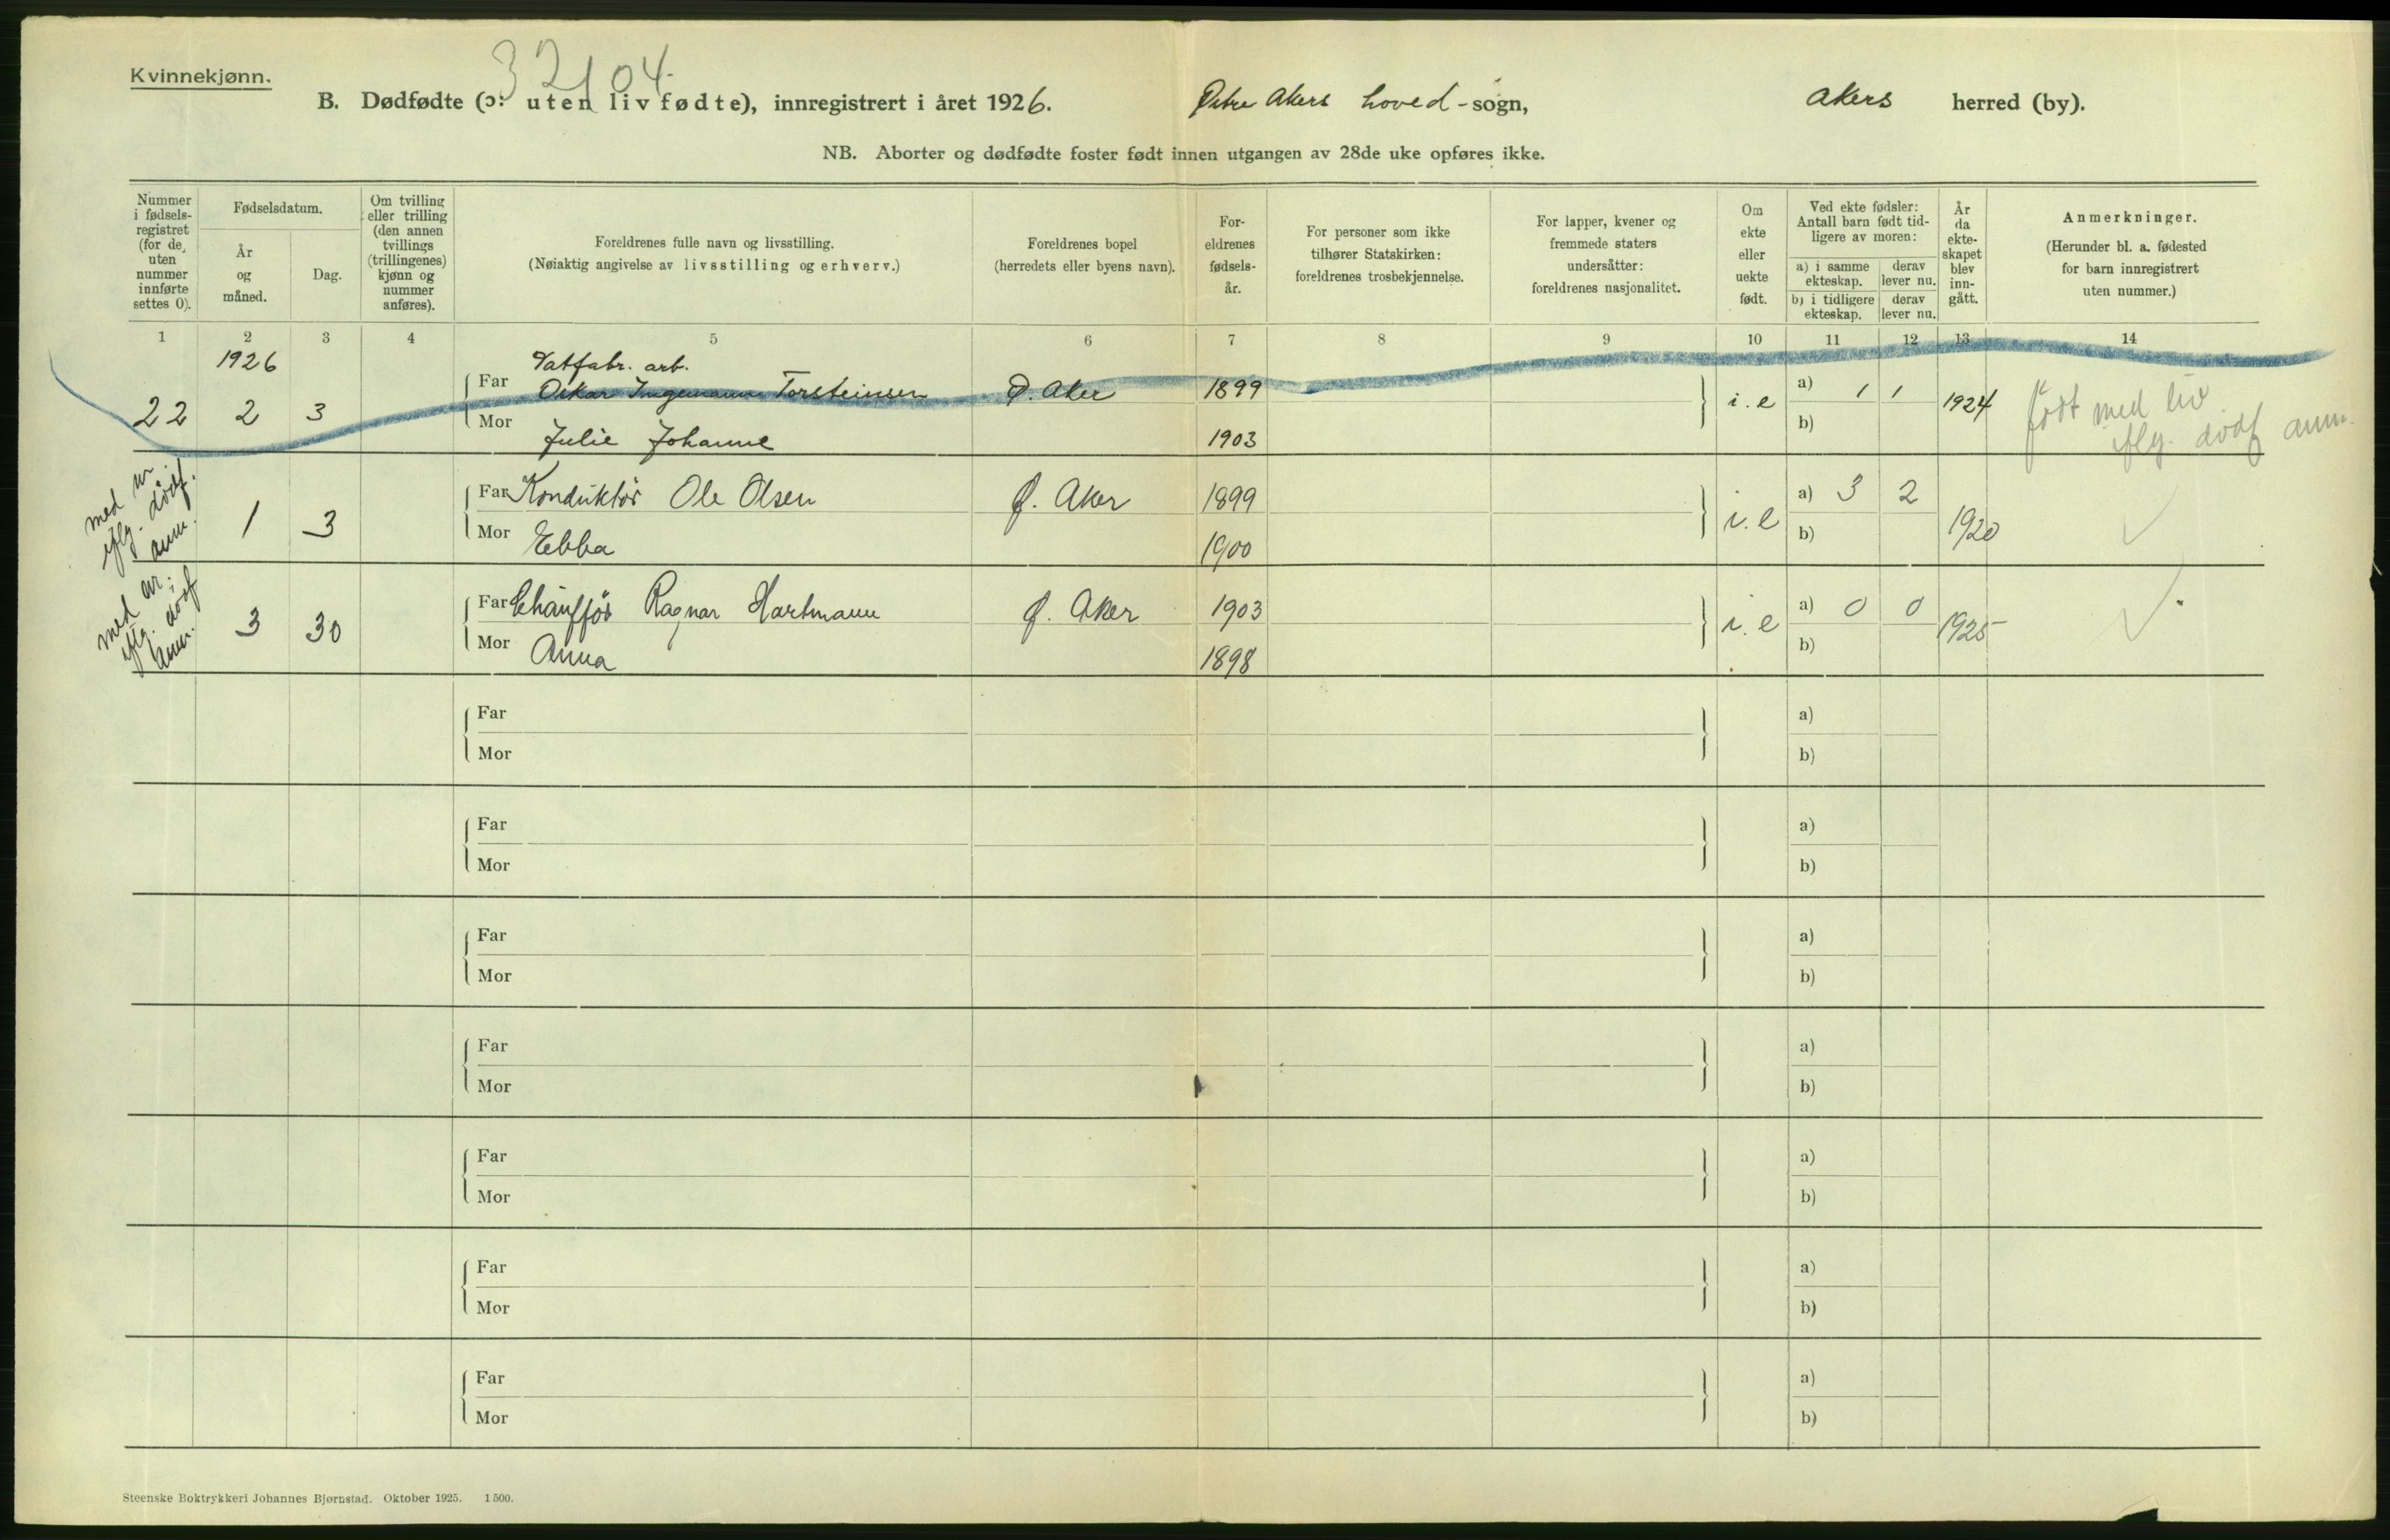 Kvinnekjønn.
32104.
B. Dødfødte (ɔ: uten liv fødte), innregistrert i året 1926. Østre Akers hoved-sogn, Akers herred (by).
NB. Aborter og dødfødte foster født innen utgangen av 28de uke opføres ikke.
Nummer i fødsels-registret (for de uten nummer innførte settes 0).
Fødselsdatum.
År og måned.
Dag.
Om tvilling eller trilling (den annen tvillings (trillingenes) kjønn og nummer anføres).
Foreldrenes fulle navn og livsstilling.
(Nøiaktig angivelse av livsstilling og erhverv.)
Foreldrenes bopel
(herredets eller byens navn).
For-eldrenes fødsels-år.
For personer som ikke tilhører Statskirken: foreldrenes trosbekjennelse.
For lapper, kvener og fremmede staters undersåtter: foreldrenes nasjonalitet.
Om ekte eller uekte født.
Ved ekte fødsler: Antall barn født tid-ligere av moren:
a) i samme ekteskap. derav lever nu.
b) i tidligere ekteskap. derav lever nu.
År da ekte-skapet blev inn-gått.
Anmerkninger.
(Herunder bl. a. fødested for barn innregistrert uten nummer.)
1 2 3 4 5 6 7 8 9 10 11 12 13 14
1926
Vatfabr. arb.
22 2 3 Far Oskar Ingemann Torsteinsen Ø. Aker 1899 i.e a) 1 1 1924 født med liv
iflg. dødf. anm.
Mor Julie Johanne 1903 b)
med nr
iflg. dødf.
anm.
1 3 Far Konduktør Ole Olsen Ø. Aker 1899 i.e a) 3 2 1920
Mor Ebba 1900 b)
med nr.
iflg. dødf
anm.
3 30 Far Chauffør Ragnar Hartmann Ø. Aker 1903 i.e a) 0 0 1925
Mor Anna 1898 b)
Far a)
Mor b)
Far a)
Mor b)
Far a)
Mor b)
Far a)
Mor b)
Far a)
Mor b)
Far a)
Mor b)
Far a)
Mor b)
Steenske Boktrykkeri Johannes Bjørnstad. Oktober 1925. 1500.